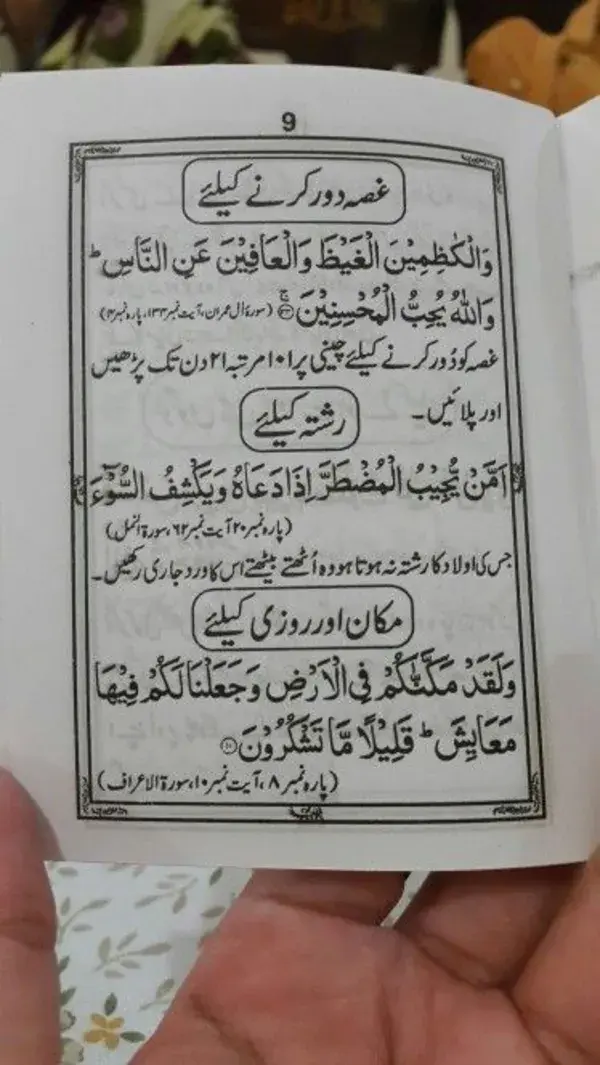 9
غصہ دور کرنے کیلئے
وَالْكٰظِمِيْنَ الْغَيْظَ وَالْعَافِيْنَ عَنِ النَّاسِ ؕ
وَاللّٰهُ يُحِبُّ الْمُحْسِنِيْنَ ۚ‏﴿۱۳۴﴾ (سورۃ اٰل عمران، آیت نمبر ۱۳۴، پارہ نمبر ۴)
غصہ کو دُور کرنے کیلئے چینی پر ۱۰۱ مرتبہ ۲۱ دن تک پڑھیں
اور پلائیں۔
رشتہ کیلئے
اَمَّنْ يُّجِيْبُ الْمُضْطَرَّ اِذَا دَعَاهُ وَيَكْشِفُ السُّوْٓءَ
(پارہ نمبر ۲۰ آیت نمبر ۶۲، سورۃ النمل)
جس کی اولاد کا رشتہ نہ ہوتا ہو وہ اُٹھتے بیٹھتے اس کا ورد جاری رکھیں۔
مکان اور روزی کیلئے
وَلَقَدْ مَكَّنّٰكُمْ فِى الْاَرْضِ وَجَعَلْنَا لَكُمْ فِيْهَا
مَعَايِشَ ؕ قَلِيْلًا مَّا تَشْكُرُوْنَ ﴿۱۰﴾
(پارہ نمبر ۸، آیت نمبر ۱۰، سورۃ الاعراف)